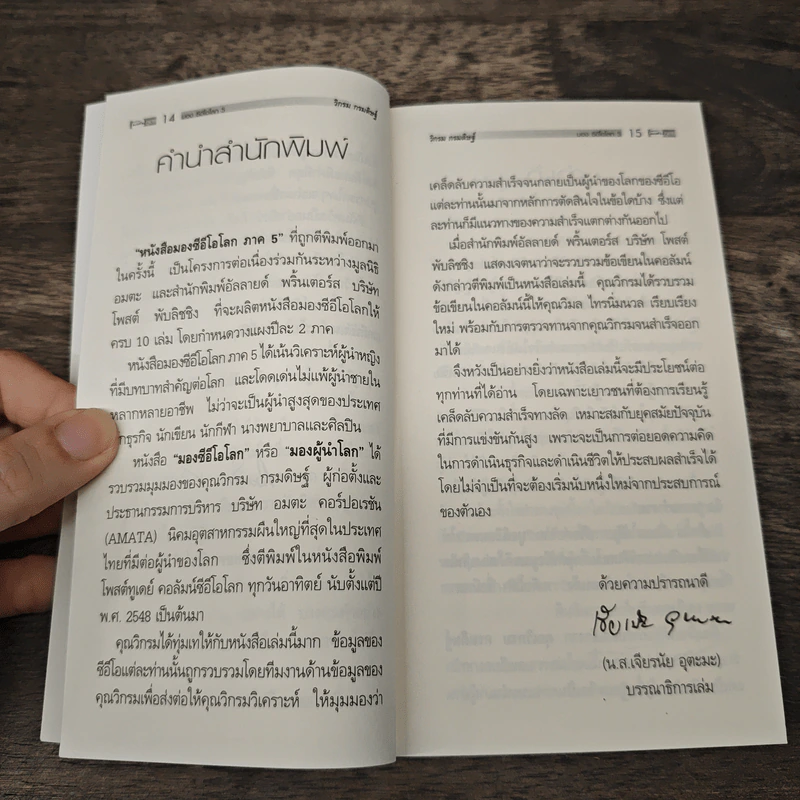 14 มองซีอีโอโลก 5 วิกรม กรมดิษฐ์
คำนำสำนักพิมพ์
"หนังสือมองซีอีโอโลก ภาค 5" ที่ถูกตีพิมพ์ออกมา
ในครั้งนี้ เป็นโครงการต่อเนื่องร่วมกันระหว่างมูลนิธิ
อมตะ และสำนักพิมพ์อัลลายด์ พริ้นเตอร์ส บริษัท
โพสต์ พับลิชชิง ที่จะผลิตหนังสือมองซีอีโอโลกให้
ครบ 10 เล่ม โดยกำหนดวางแผงปีละ 2 ภาค
หนังสือมองซีอีโอโลก ภาค 5 ได้เน้นวิเคราะห์ผู้นำหญิง
ที่มีบทบาทสำคัญต่อโลก และโดดเด่นไม่แพ้ผู้นำชายใน
หลากหลายอาชีพ ไม่ว่าจะเป็นผู้นำสูงสุดของประเทศ
ธุรกิจ นักเขียน นักกีฬา นางพยาบาลและศิลปิน
หนังสือ "มองซีอีโอโลก" หรือ "มองผู้นำโลก" ได้
รวบรวมมุมมองของคุณวิกรม กรมดิษฐ์ ผู้ก่อตั้งและ
ประธานกรรมการบริหาร บริษัท อมตะ คอร์ปอเรชัน
(AMATA) นิคมอุตสาหกรรมผืนใหญ่ที่สุดในประเทศ
ไทยที่มีต่อผู้นำของโลก ซึ่งตีพิมพ์ในหนังสือพิมพ์
โพสต์ทูเดย์ คอลัมน์ซีอีโอโลก ทุกวันอาทิตย์ นับตั้งแต่ปี
พ.ศ. 2548 เป็นต้นมา
คุณวิกรมได้ทุ่มเทให้กับหนังสือเล่มนี้มาก ข้อมูลของ
ซีอีโอแต่ละท่านนั้นถูกรวบรวมโดยทีมงานด้านข้อมูลของ
คุณวิกรมเพื่อส่งต่อให้คุณวิกรมวิเคราะห์ ให้มุมมองว่า
วิกรม กรมดิษฐ์ มองซีอีโอโลก 5 15
เคล็ดลับความสำเร็จจนกลายเป็นผู้นำของโลกของซีอีโอ
แต่ละท่านนั้นมาจากหลักการตัดสินใจในข้อใดบ้าง ซึ่งแต่
ละท่านก็มีแนวทางของความสำเร็จแตกต่างกันออกไป
เมื่อสำนักพิมพ์อัลลายด์ พริ้นเตอร์ส บริษัท โพสต์
พับลิชชิง แสดงเจตนาว่าจะรวบรวมข้อเขียนในคอลัมน์
ดังกล่าวตีพิมพ์เป็นหนังสือเล่มนี้ คุณวิกรมได้รวบรวม
ข้อเขียนในคอลัมน์นี้ให้คุณวิมล ไทรนิ่มนวล เรียบเรียง
ใหม่ พร้อมกับการตรวจทานจากคุณวิกรมจนสำเร็จออก
มาได้
จึงหวังเป็นอย่างยิ่งว่าหนังสือเล่มนี้จะมีประโยชน์ต่อ
ทุกท่านที่ได้อ่าน โดยเฉพาะเยาวชนที่ต้องการเรียนรู้
เคล็ดลับความสำเร็จทางลัด เหมาะสมกับยุคสมัยปัจจุบัน
ที่มีการแข่งขันกันสูง เพราะจะเป็นการต่อยอดความคิด
ในการดำเนินธุรกิจและดำเนินชีวิตให้ประสบผลสำเร็จได้
โดยไม่จำเป็นที่จะต้องเริ่มนับหนึ่งใหม่จากประสบการณ์
ของตัวเอง
ด้วยความปรารถนาดี
(น.ส.เจียรนัย อุตะมะ)
บรรณาธิการเล่ม